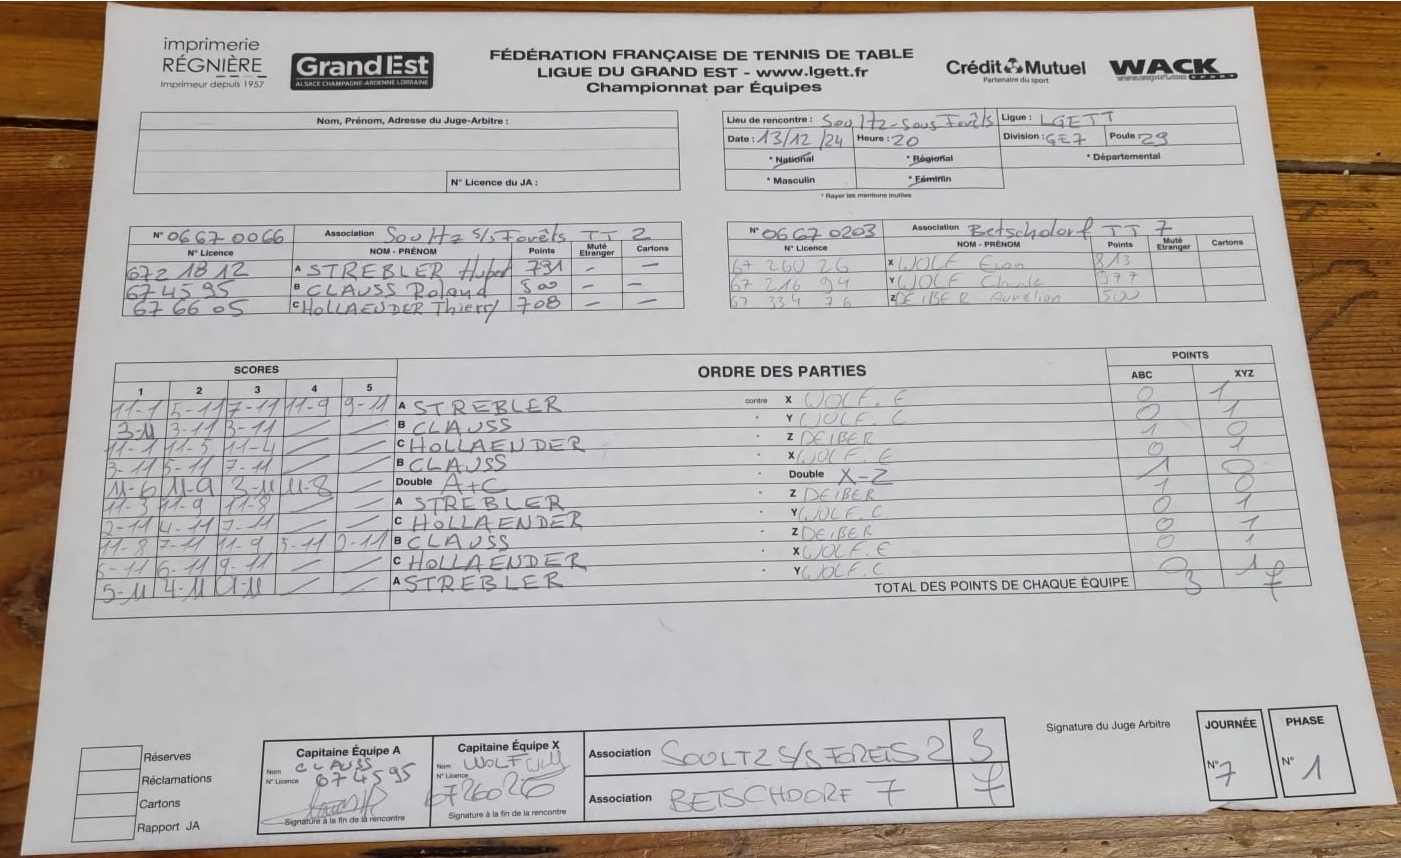 imprimerie
RÉGNIÈRE
Imprimeur depuis 1957
Grand Est
ALSACE CHAMPAGNE-ARDENNE LORRAINE
FÉDÉRATION FRANÇAISE DE TENNIS DE TABLE
LIGUE DU GRAND EST - www.lgett.fr
Championnat par Équipes
Crédit Mutuel
Partenaire du sport
WACK
Nom, Prénom, Adresse du Juge-Arbitre :
N° Licence du JA :
Lieu de rencontre : Soultz-sous Forêts Ligue : LGETT
Date : 13/12/24 Heure : 20 Division : GE7 Poule : 29
* National * Régional * Départemental
* Masculin * Féminin
* Rayer les mentions inutiles
N° 06670066 Association Soultz s/s Forêts TT 2
N° Licence NOM - PRÉNOM Points Muté Etranger Cartons
672 18 12 A STREBLER Hubert 791 – –
67 45 95 B CLAUSS Roland 500 – –
67 66 05 C HOLLAENDER Thierry 708 – –
N° 06670203 Association Betschdorf TT 7
N° Licence NOM - PRÉNOM Points Muté Etranger Cartons
67 260 26 X WOLF Evan 813
67 216 94 Y WOLF Claude 977
67 334 76 Z DEIBER Aurélien 500
SCORES ORDRE DES PARTIES POINTS
1 2 3 4 5 ABC XYZ
11-1 5-11 7-11 11-9 9-11 A STREBLER contre X WOLF.E 0 1
3-11 3-11 3-11 / / B CLAUSS Y WOLF C 0 1
11-1 11-5 11-4 / / C HOLLAENDER Z DEIBER 1 0
3-11 5-11 7-11 / / B CLAUSS X WOLF.E 0 1
11-6 11-9 3-11 11-8 / Double A+C Double X-Z 1 0
11-3 11-9 11-8 / / A STREBLER Z DEIBER 1 0
2-11 4-11 7-11 / / C HOLLAENDER Y WOLF.C 0 1
11-8 7-11 11-9 5-11 B CLAUSS Z DEIBER 0 1
6-11 9-11 / / C HOLLAENDER X WOLF.E 0 1
5-11 4-11 / / A STREBLER Y WOLF.C 0 1
TOTAL DES POINTS DE CHAQUE ÉQUIPE 3 7
Réserves
Réclamations
Cartons
Rapport JA
Capitaine Équipe A
Nom CLAUSS
N° Licence 674595
Signature à la fin de la rencontre
Capitaine Équipe X
Nom WOLF
N° Licence 6726026
Signature à la fin de la rencontre
Association SOULTZ S/S FORETS 2 3
Association BETSCHDORF 7 7
Signature du Juge Arbitre
JOURNÉE
N° 7
PHASE
N° 1